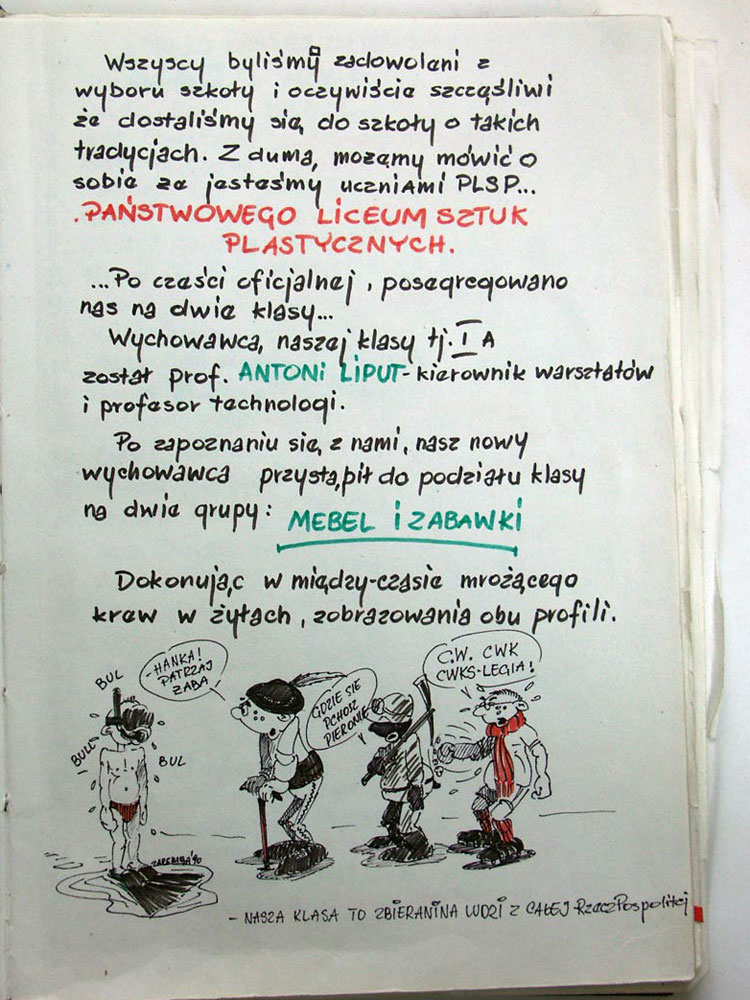 Wszyscy byliśmy zadowoleni z
wyboru szkoły i oczywiście szczęśliwi
że dostaliśmy się do szkoły o takich
tradycjach. Z dumą, możemy mówić o
sobie że jesteśmy uczniami PLSP...
.PAŃSTWOWEGO LICEUM SZTUK
PLASTYCZNYCH.
...Po części oficjalnej, posegregowano
nas na dwie klasy...
Wychowawcą, naszej klasy tj. I A
został prof. ANTONI LIPUT - kierownik warsztatów
i profesor technologi.
Po zapoznaniu się z nami, nasz nowy
wychowawca przystąpił do podziału klasy
na dwie grupy: MEBEL i ZABAWKI
Dokonując w między-czasie mrożącego
krew w żyłach, zobrazowania obu profili.
BUL
BULL
BUL
-HANKA!
PATRZAJ
ŻABA
GDZIE SIE
PCHOSZ
PIERONIE
C.W. CWK
CWKS-LEGIA!
ZAREMBA'90
- NASZA KLASA TO ZBIERANINA LUDZI Z CAŁEJ RzeczPospolitej